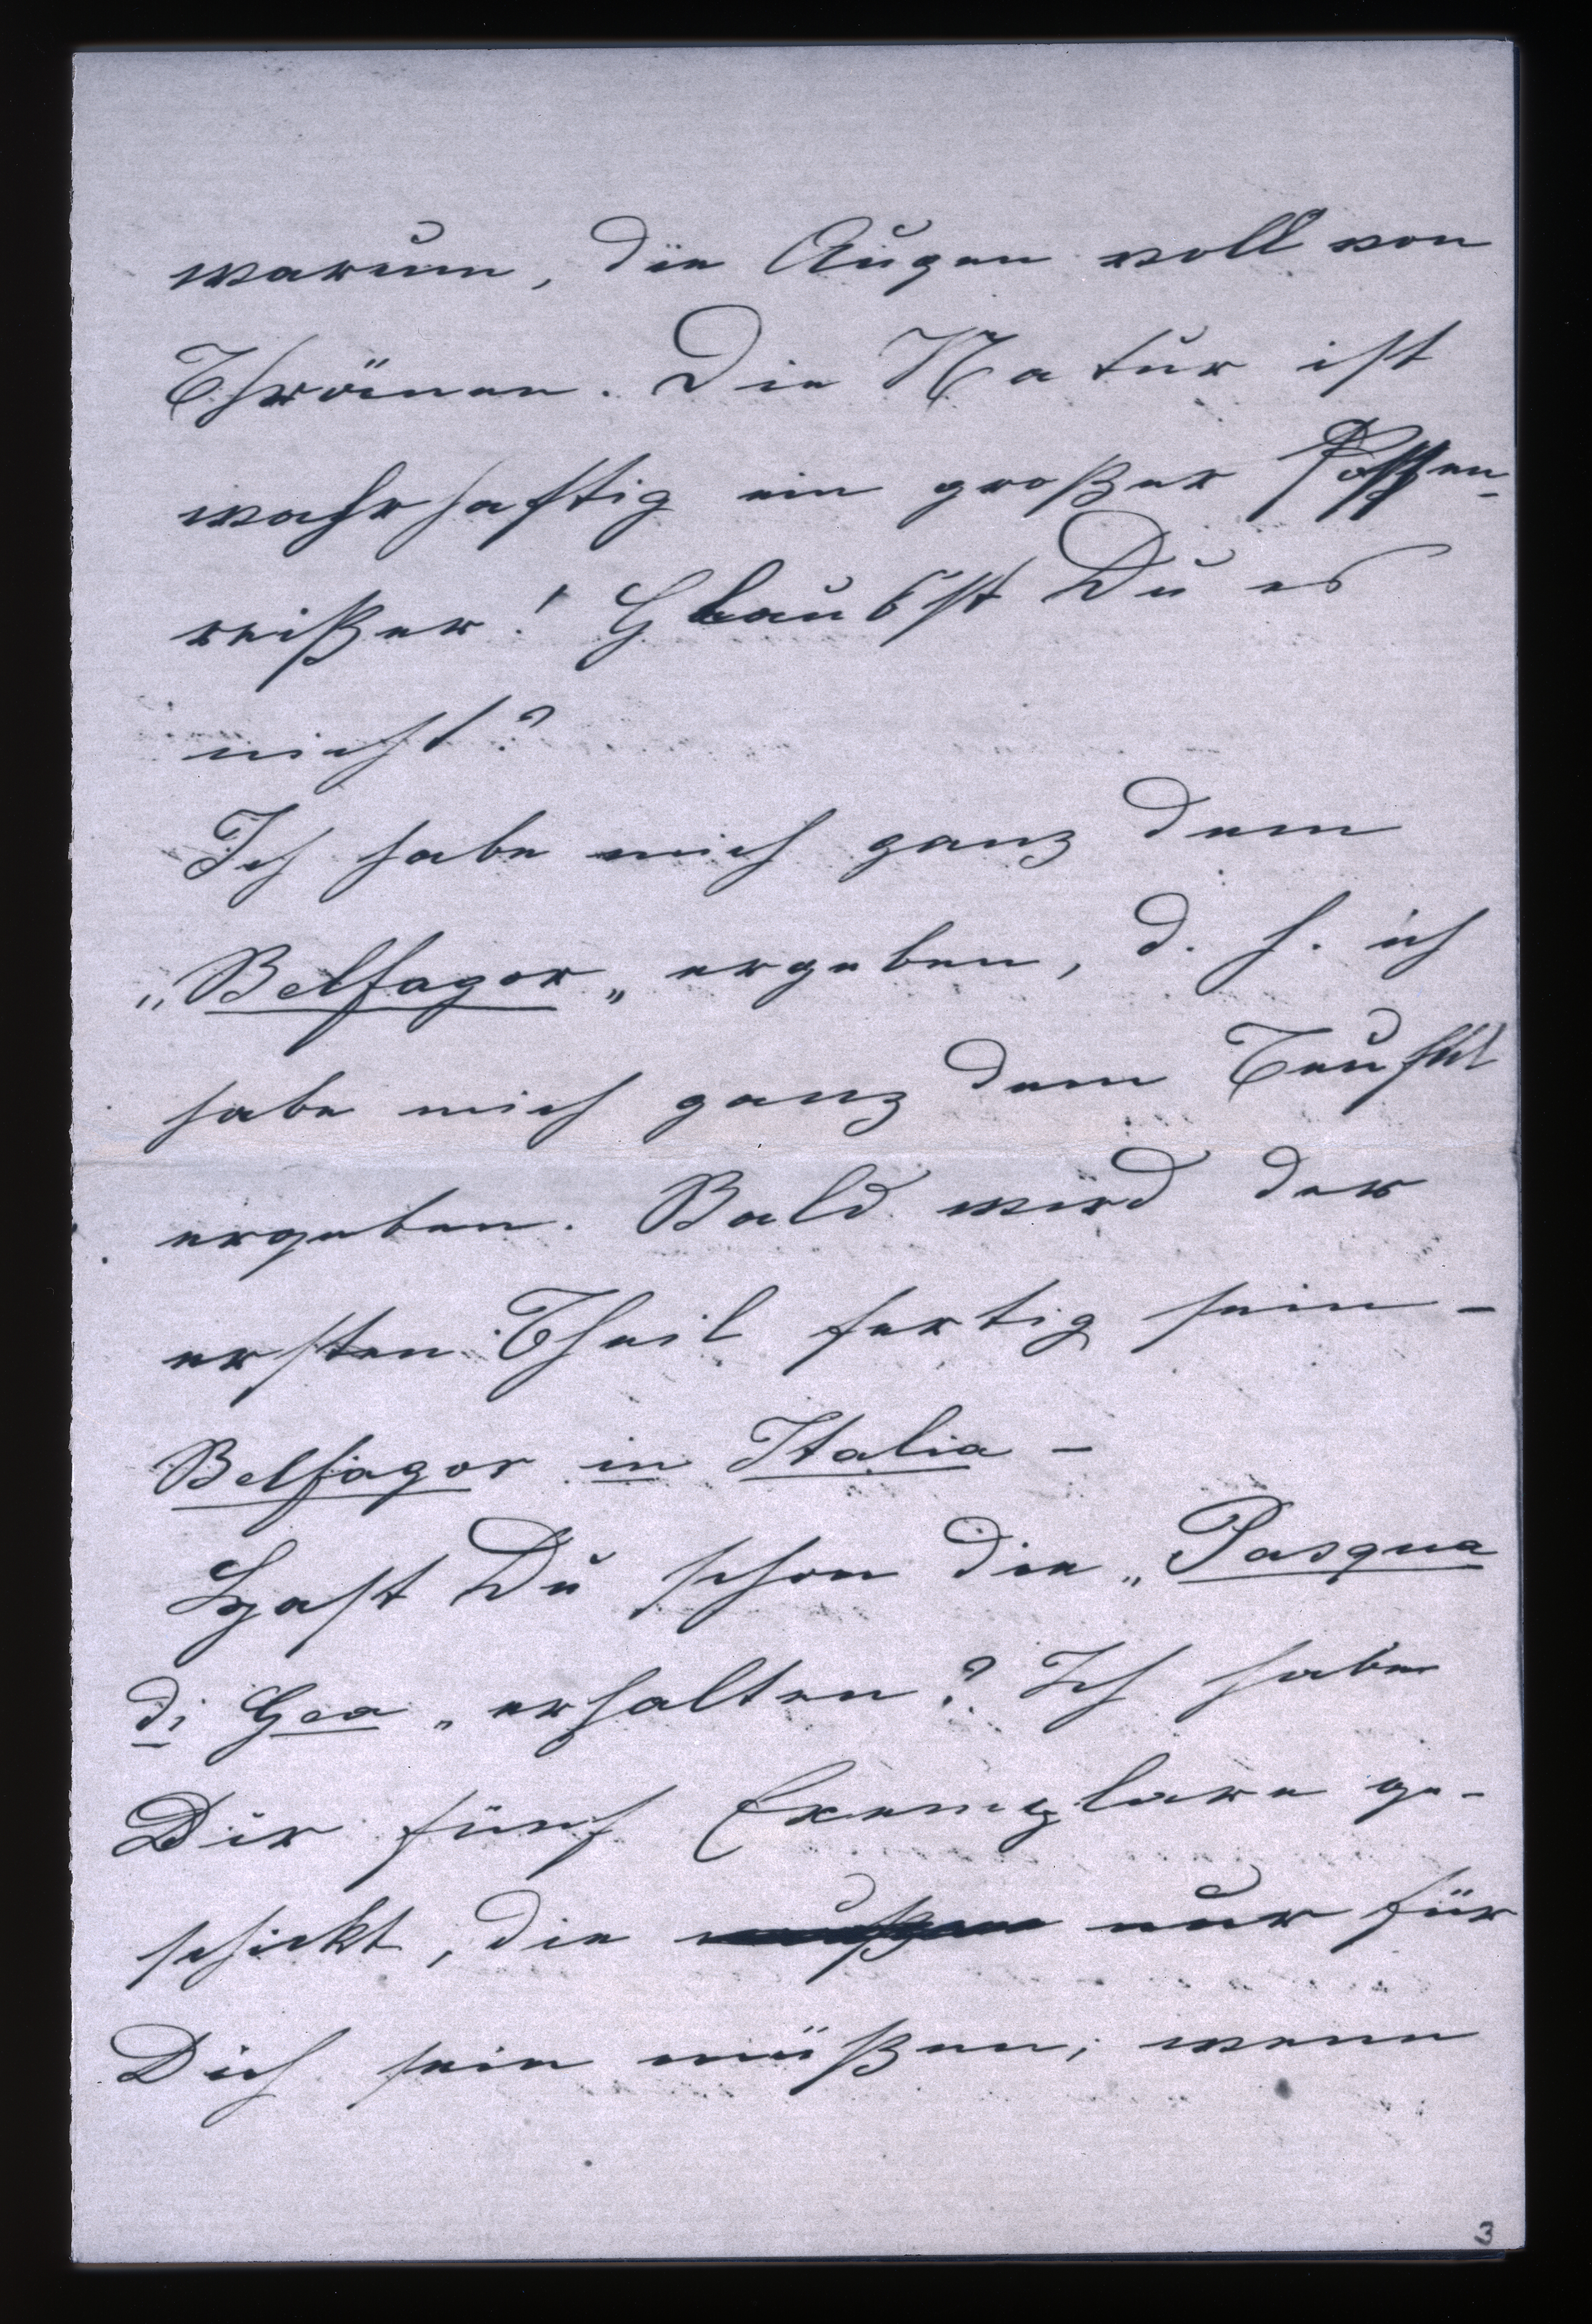 warum, die Augen voll von
Thränen. Die Natur ist
wahrhaftig ein großer Possen-
reißer! Glaubst Du es
nicht?
Ich habe mich ganz dem
„Belfagor„ ergeben, d. h. ich
habe mich ganz dem Teufel
ergeben. Bald wird der
ersten Theil fertig sein –
Belfagor in Italia –
Hast Du schon die „Pasqua
di Gea„ erhalten? Ich habe
Dir fünf Exemplare ge-
schickt, die nur für
Dich sein müßen; wenn
3